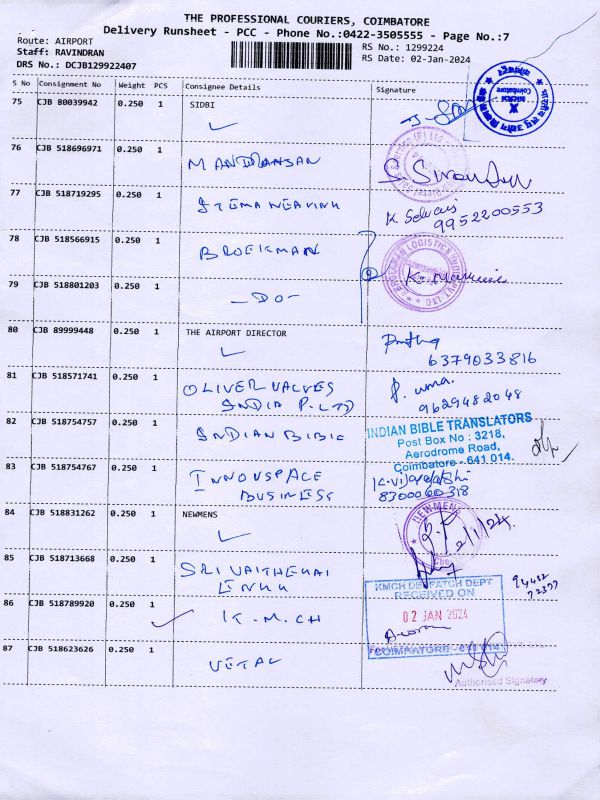 THE PROFESSIONAL COURIERS, COIMBATORE
Delivery Runsheet - PCC - Phone No.:0422-3505555 - Page No.:7
Route: AIRPORT
Staff: RAVINDRAN
DRS No.: DCJB129922407
RS No.: 1299224
RS Date: 02-Jan-2024
S No Consignment No Weight PCS Consignee Details Signature
75 CJB 80039942 0.250 1 SIDBI
Coimbatore
76 CJB 518696971 0.250 1
77 CJB 518719295 0.250 1
K. Selvaraj
9952200553
78 CJB 518566915 0.250 1 BROEKMAN
BROEKMAN LOGISTICS INDIA PVT. LTD
79 CJB 518801203 0.250 1 -DO-
80 CJB 89999448 0.250 1 THE AIRPORT DIRECTOR
6379033816
81 CJB 518571741 0.250 1 OLIVER VALVES
INDIA P. LTD
P. uma.
9629482048
82 CJB 518754757 0.250 1 INDIAN BIBLE
INDIAN BIBLE TRANSLATORS
Post Box No : 3218,
Aerodrome Road,
Coimbatore - 641 014.
83 CJB 518754767 0.250 1 INNOVSPACE
BUSINESS
8700060318
84 CJB 518831262 0.250 1 NEWMENS
NEWMENS
2/1/24.
85 CJB 518713668 0.250 1 SRI VAITHEKAI
86 CJB 518789920 0.250 1 K.M.CH
KMCH DESPATCH DEPT
RECEIVED ON
02 JAN 2024
COIMBATORE - 641 014
87 CJB 518623626 0.250 1 VETAL
Authorised Signatory